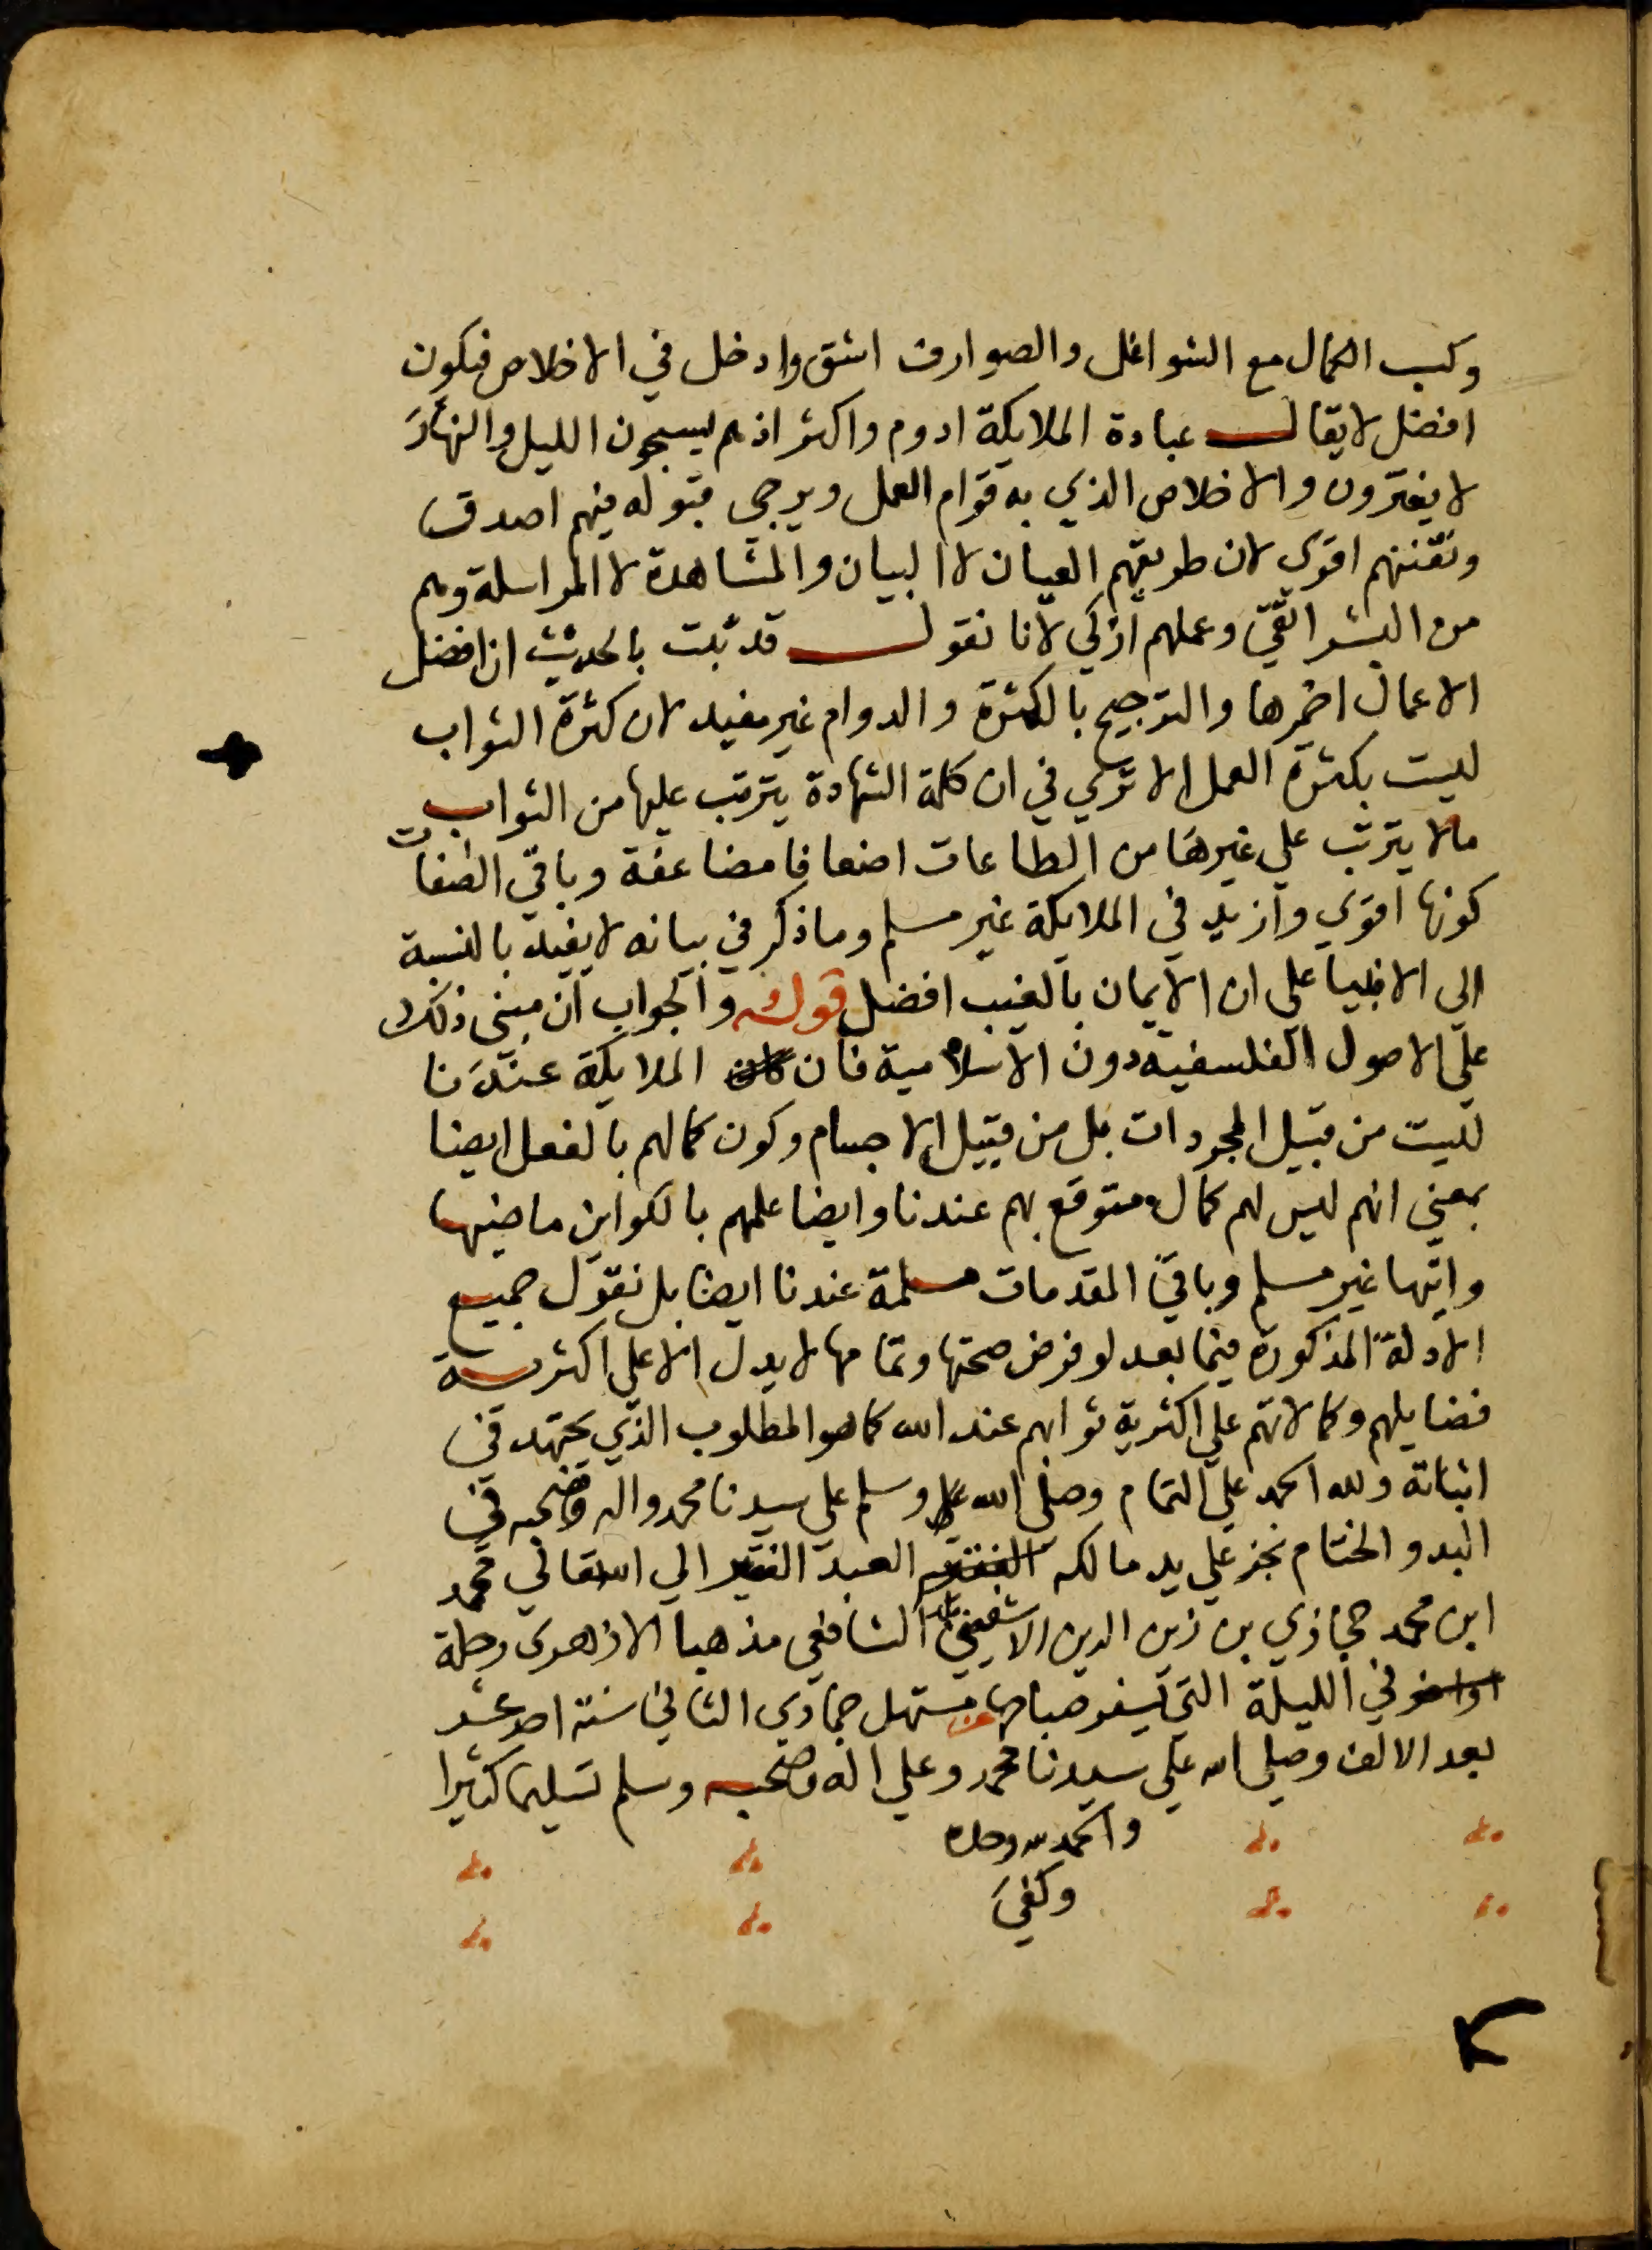 وكسب الكمال مع الشواغل والصوارف اشق وادخل في الاخلاص فيكون
افضل لا يقال عبادة الملايكة ادوم واكثر اذ هم يسبحون الليل والنهار
لا يفترون والاخلاص الذي به قوام العمل ويرجى قبوله فيهم اصدق
وتقننهم اقوي لان طريقهم العيان لا البيان والمشاهدة لا المراسلة وهم
من البشر اتقي وعملهم ازكي لانا نقول قد ثبت بالحديث ان افضل
الاعمال احمزها والترجيح بالكثرة والدوام غير مفيد لان كثرة الثواب
ليست بكثرة العمل الا تري في ان كلمة الشهادة يترتب عليها من الثواب
ما لا يترتب علي غيرها من الطاعات اضعافا مضاعفة وباقي الصفات
كونها اقوي وازيد في الملايكة غير مسلم وما ذكر في بيانه لا يفيد بالنسبة
الى الانبيا على ان الايمان بالغيب افضل قوله والجواب ان مبنى ذلك
علي الاصول الفلسفية دون الاسلامية فان الملايكة عندنا
ليست من قبيل المجردات بل من قبيل الاجسام وكون كمالهم بالفعل ايضا
بمعني انهم ليس لهم كمال متوقع بهم عندنا وايضا علمهم بالكواين ماضيها
واتيها غير مسلم وباقي المقدمات مسلمة عندنا ايضا بل نقول جميع
الادلة المذكورة فيما بعد لو فرض صحتها وتمامها لا يدل الا علي اكثرية
فضايلهم وكمالاتهم علي اكثرية ثوابهم عند الله كما هو المطلوب الذي يجتهد في
اثباته ولله الحمد علي التمام وصلى الله وسلم علي سيدنا محمد واله وصحبه في
البدو والختام نجز علي يد مالكه العبد الفقير الي الله تعالي محمد
ابن محمد حجازي بن زين الدين الشافعي مذهبا الازهرى رحلة
في الليلة التي يسفر صباحها عن مستهل جمادي الثاني سنة احد عشر
بعد الالف وصلى الله علي سيدنا محمد وعلي اله وصحبه وسلم تسليما كثيرا
والحمد لله وحده
وكفي